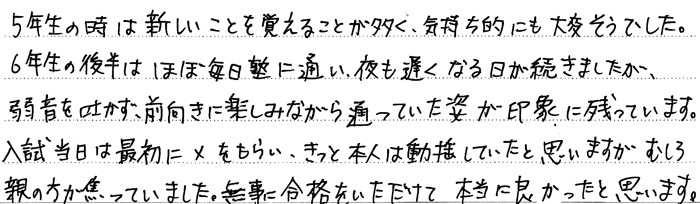 5年生の時は新しいことを覚えることが多く、気持ち的にも大変そうでした。
6年生の後半はほぼ毎日塾に通い、夜も遅くなる日が続きましたが、
弱音を吐かず、前向きに楽しみながら通っていた姿が印象に残っています。
入試当日は最初に×をもらい、きっと本人は動揺していたと思いますがむしろ
親の方が焦っていました。無事に合格をいただけて本当に良かったと思います。